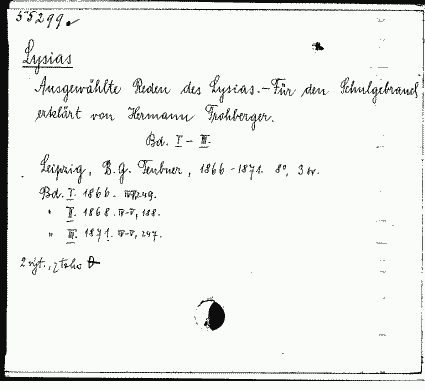 55299
Lysias
Ausgewählte Reden des Lysias. - Für den Schulgebrauch
erklärt von Hermann Frohberger.
Bd. I - III.
Leipzig, B. G. Teubner, 1866 - 1871. 8°, 3
Bd. I. 1866. 249.
" II. 1868. IV-V, 188.
" III. 1871. IV-V, 247.